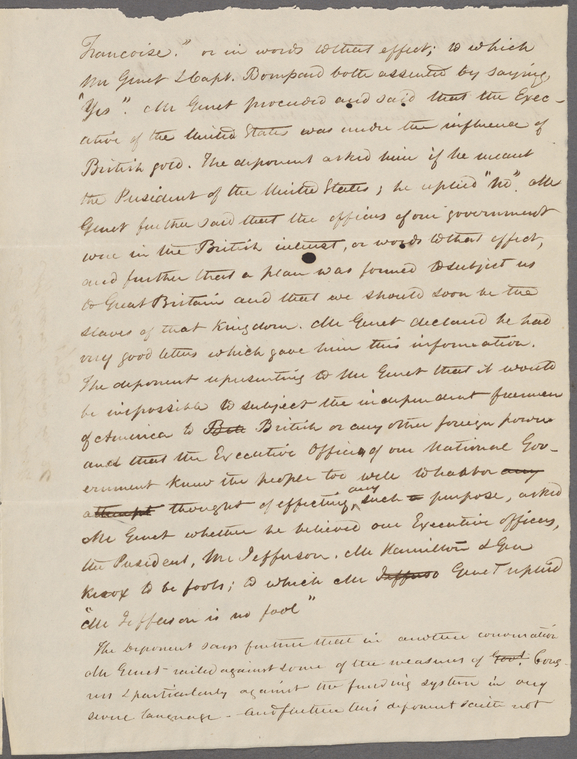 Francoise." or in words to that effect; to which
Mr Genet & Capt. Bompard both assented by saying
"Yes". Mr Genet proceeded and said that the Exec-
ative of the United States was under the influence of
British gold. The deponent asked him if he meant
the President of the United States; he replied "No". Mr
Genet further said that the officers of our government
were in the British interest, or words to that effect,
and further that a plan was formed to subject us
to Great Britain and that we should soon be the
slaves of that Kingdom. Mr Genet declared he had
very good letters which gave him this information.
The deponent representing to Mr Genet that it would
be impossible to subject the independent freemen
of America to British or any other foreign power
and that the Executive Officers of our National Gov-
ernment knew the people too well to harbor any
attempt thought of effecting any such purpose, asked
Mr Genet whether he believed our Executive officers,
the President, Mr Jefferson. Mr Hamilton & Gen
Knox to be fools; to which Mr Jefferso Genet replied
"Mr Jefferson is no fool"
The Deponent says further that in another conversation
Mr Genet railed against some of the measures of Govt. Cong-
ress & particularly against the funding system in very
severe language - and further this deponent saith not